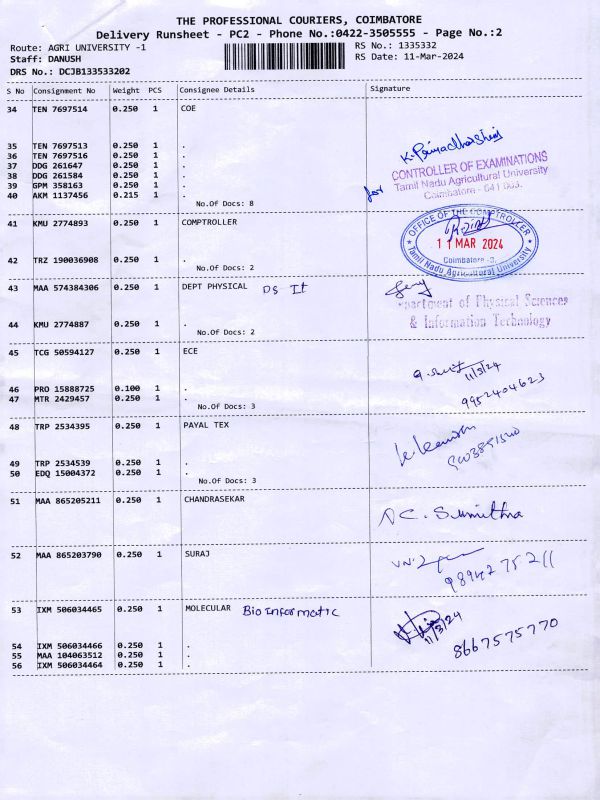 THE PROFESSIONAL COURIERS, COIMBATORE
Delivery Runsheet - PC2 - Phone No.:0422-3505555 - Page No.:2
Route: AGRI UNIVERSITY -1
RS No.: 1335332
Staff: DANUSH
RS Date: 11-Mar-2024
DRS No.: DCJB133533202
S No Consignment No Weight PCS Consignee Details Signature
34 TEN 7697514 0.250 1 COE
35 TEN 7697513 0.250 1 .
36 TEN 7697516 0.250 1 .
37 DDG 261647 0.250 1 .
38 DDG 261584 0.250 1 .
39 GPM 358163 0.250 1 .
40 AKM 1137456 0.215 1 .
No.Of Docs: 8
for
CONTROLLER OF EXAMINATIONS
Tamil Nadu Agricultural University
Coimbatore - 641 003.
41 KMU 2774893 0.250 1 COMPTROLLER
42 TRZ 190036908 0.250 1 .
No.Of Docs: 2
OFFICE OF THE COMPTROLLER
11 MAR 2024
Coimbatore -3.
Tamil Nadu Agricultural University
43 MAA 574384306 0.250 1 DEPT PHYSICAL DS It
44 KMU 2774887 0.250 1 .
No.Of Docs: 2
partment of Physical Sciences
& Information Technology
45 TCG 50594127 0.250 1 ECE
46 PRO 15888725 0.100 1 .
47 MTR 2429457 0.250 1 .
No.Of Docs: 3
11/3/24
9952404623
48 TRP 2534395 0.250 1 PAYAL TEX
49 TRP 2534539 0.250 1 .
50 EDQ 15004372 0.250 1 .
No.Of Docs: 3
51 MAA 865205211 0.250 1 CHANDRASEKAR
C. Sumithra
52 MAA 865203790 0.250 1 SURAJ
9894275211
53 IXM 506034465 0.250 1 MOLECULAR Bio Informatic
11/3/24
8667575770
54 IXM 506034466 0.250 1 .
55 MAA 104063512 0.250 1 .
56 IXM 506034464 0.250 1 .